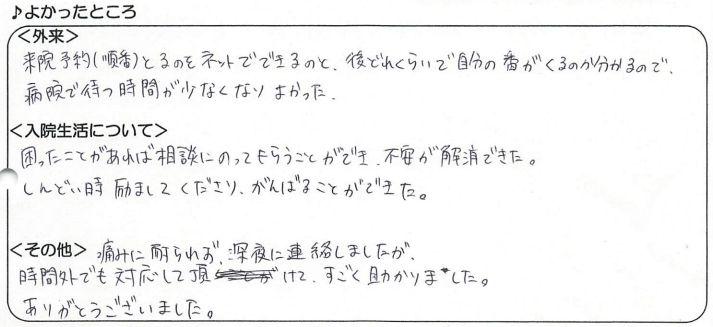 ♪よかったところ
＜外来＞
来院予約(順番)とるのをネットでできるのと、後どれくらいで自分の番がくるのか分かるので、
病院で待つ時間が少なくなりよかった。
＜入院生活について＞
困ったことがあれば相談にのってもらうことができ、不安が解消できた。
しんどい時励ましてくださり、がんばることができた。
＜その他＞ 痛みに耐られず、深夜に連絡しましたが、
時間外でも対応して頂けて、すごく助かりました。
ありがとうございました。